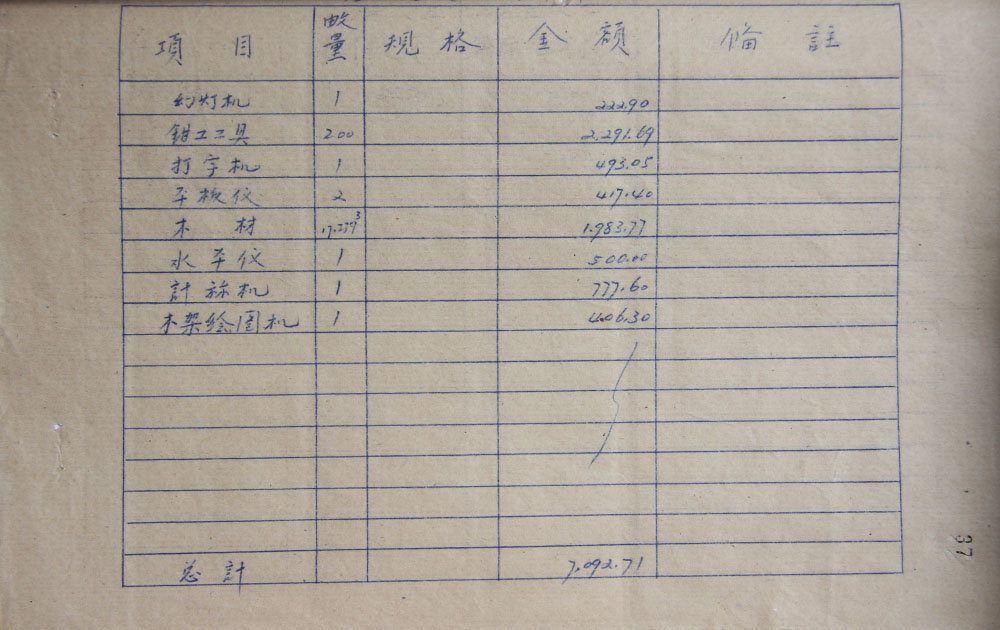 項目 數量 規格 金額 備註
幻灯机 1 222.90
鉗工工具 200 2,291.69
打字机 1 493.05
平板仪 2 417.40
木材 1.983.77
水平仪 1 500.00
計祘机 1 777.60
木架绘图机 1 406.30
总計 7,092.71
37